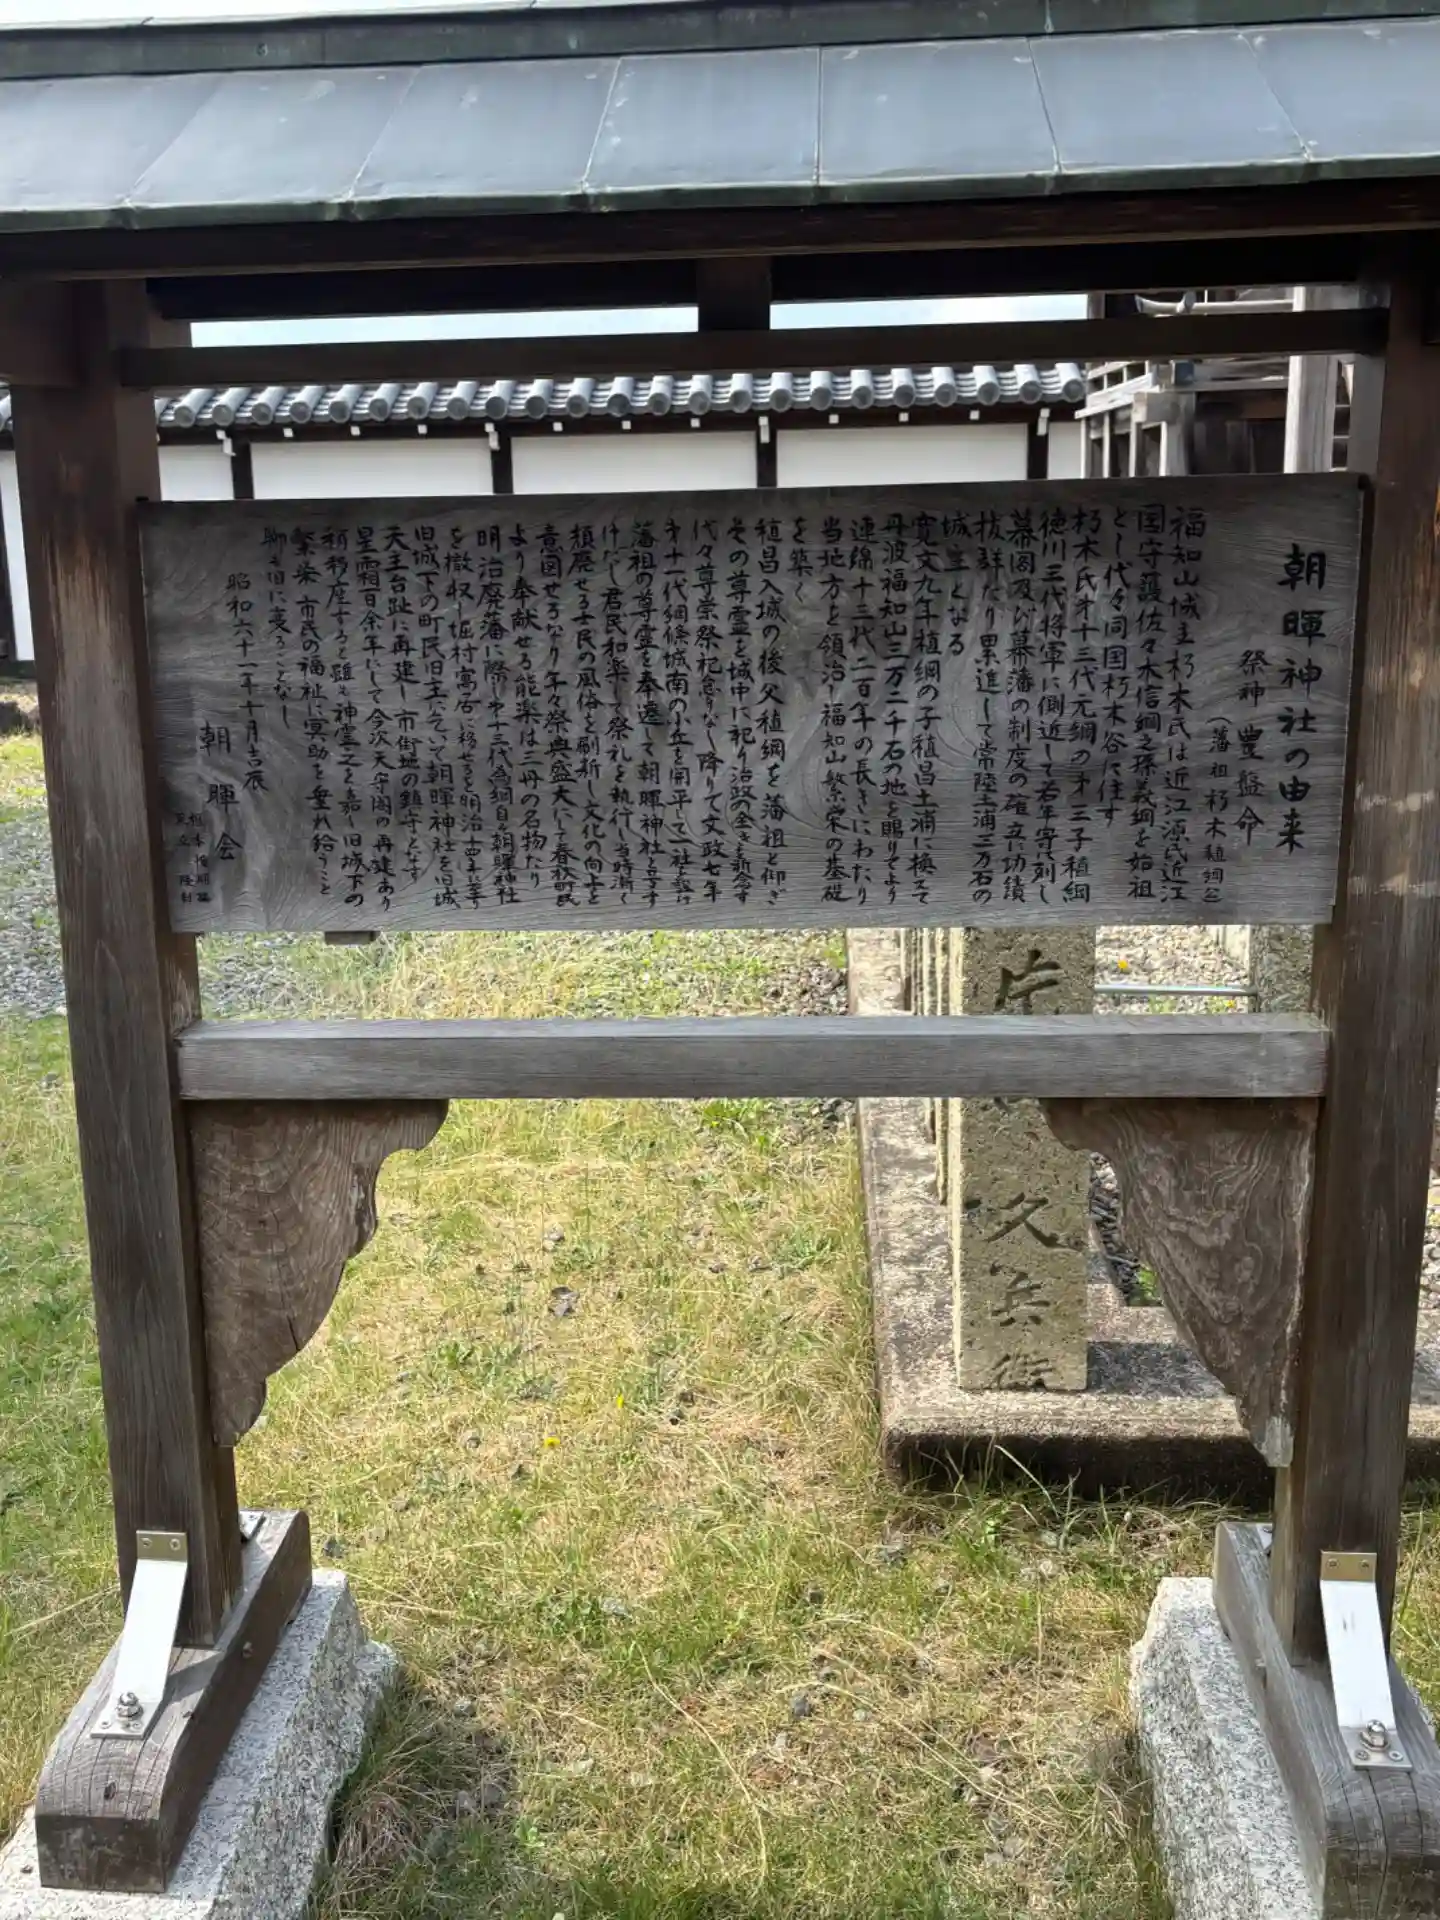 朝暉神社の由来
祭神 豊盤命
(藩祖朽木稙綱公)
福知山城主朽木氏は近江源氏近江
国守護佐々木信綱之孫義綱を始祖
とし代々同国朽木谷に住す
朽木氏才十三代元綱の才三子稙綱
徳川三代将軍に側近して若年寄に列し
幕閣及び幕藩の制度の確立に功績
抜群たり累進して常陸土浦三万石の
城主となる
寛文九年稙綱の子稙昌土浦に換えて
丹波福知山三万二千石の地を賜りてより
連綿十三代二百年の長きにわたり
当地方を領治し福知山繁栄の基礎
を築く
稙昌入城の後父稙綱を藩祖と仰ぎ
その尊霊を城中に祀り治政の全きを祈念す
代々尊崇祭祀怠りなし降りて文政七年
才十一代綱條城南の小丘を開平して一社を設け
藩祖の尊霊を奉遷して朝暉神社と号す
けだし君民和楽して祭礼を執行し当時漸く
頽廃せる士民の風俗を刷新し文化の向上を
意図せるなり年々祭典盛大にて春秋町民
より奉献せる能楽は三丹の名物たり
明治廃藩に際し才十三代為綱自ら朝暉神社
を撤収し堀村寓居に移せるを明治十四年に至り
旧城下の町民旧主に乞いて朝暉神社を旧城
天主台趾に再建し市街地の鎮守となす
星霜百余年にして今次天守閣の再建あり
稍移座すると雖も神霊之を嘉し旧城下の
繁栄市民の福祉に冥助を垂れ給うこと
聊も旧に変ることなし
昭和六十一年十月吉辰
朝暉会
片
久兵衛